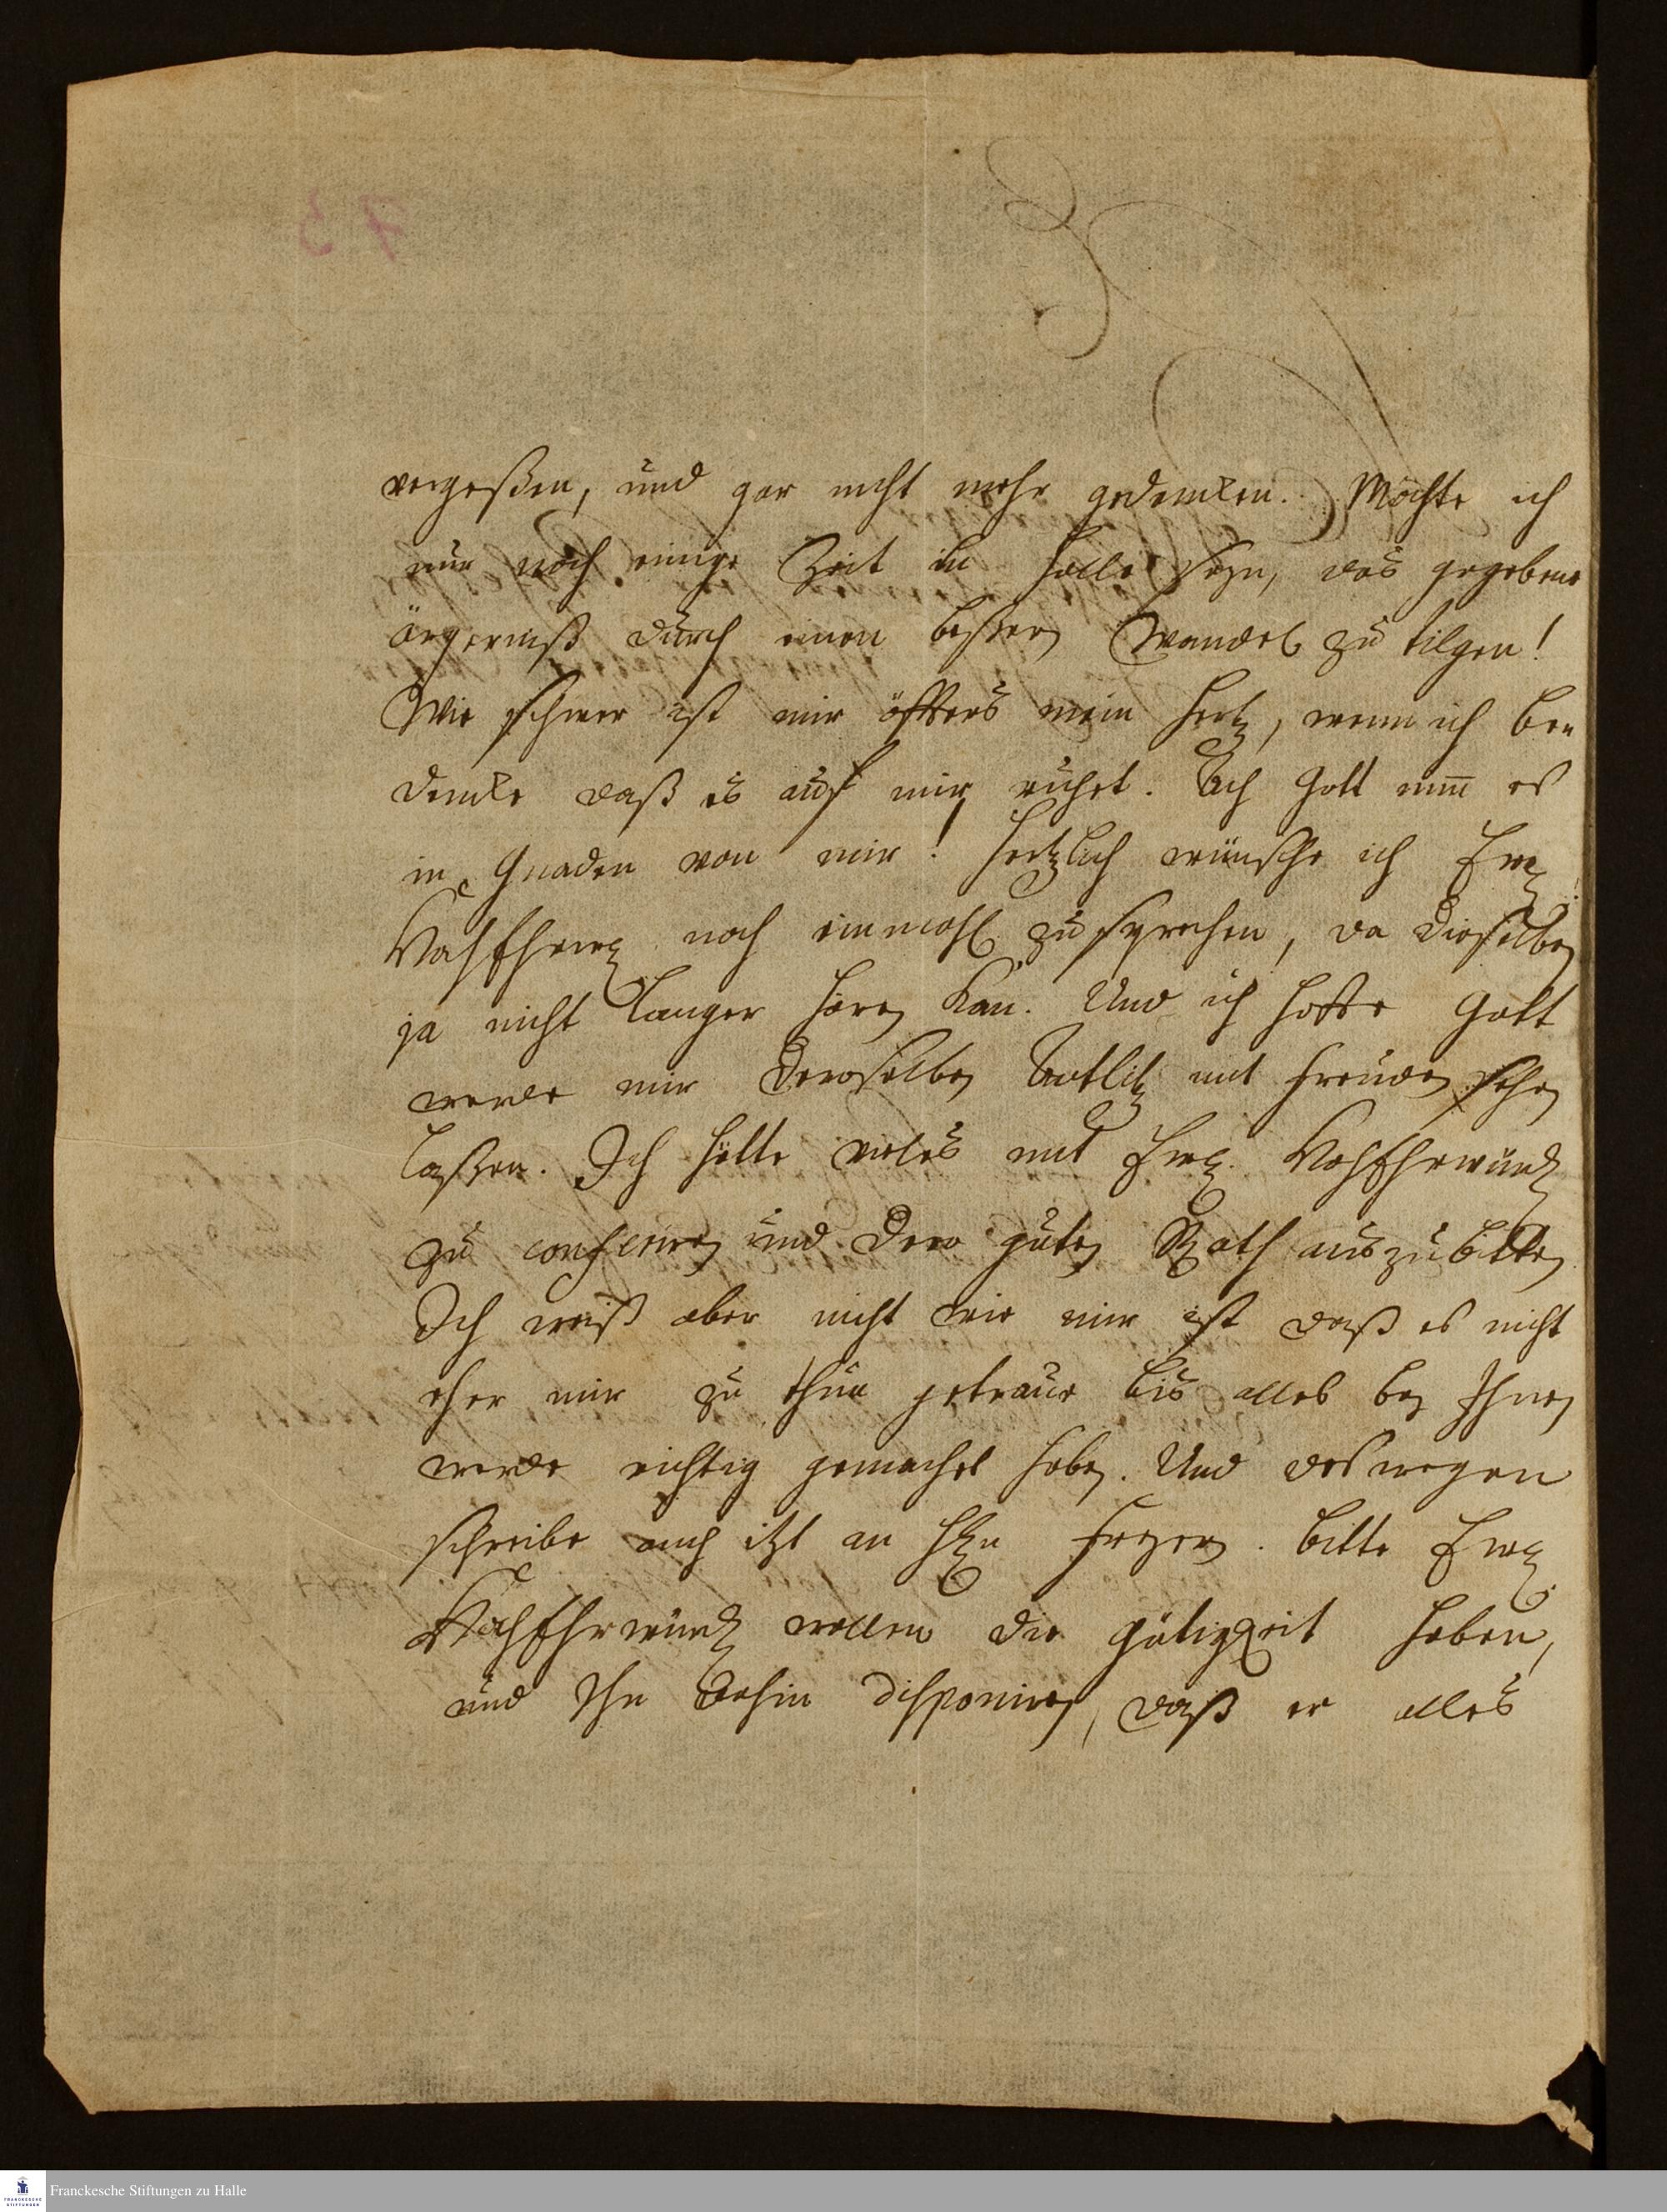 vergeßen, und gar nicht mehr gedencken. Möchte ich
nur noch einige Zeit in Halle seyn, das gegebene
ärgerniß durch einen beßern Wandel zu tilgen!
Wie schwer ist mir öffters mein Hertz, wenn ich be-
dencke daß es auf mir ruhet. Ach Gott nim̅ es
in Gnaden von mir! Hertzlich wünsche ich Ew.
WohlEhrw. noch einmahl zu sprechen, da dieselben
ja nicht langer hören kan. Und ich hoffe Gott
werde mir deroselben Antlitz mit Freuden sehen
laßen. Ich hätte vieles mit Ew. WohlEhrwürd.
zu conferiren und dero guten Rath auszubitten
Ich weiß aber nicht wie mir ist daß es nicht
eher mir zu thun getraue bis alles bey Ihnen
werde richtig gemachet haben. Und deswegen
schreibe auch itzt an HEn Freyer. Bitte Ew.
WohlEhrwürd. wollen die Gütigkeit haben,
und Ihn dahin disponiren, daß er alles
Franckesche Stiftungen zu Halle